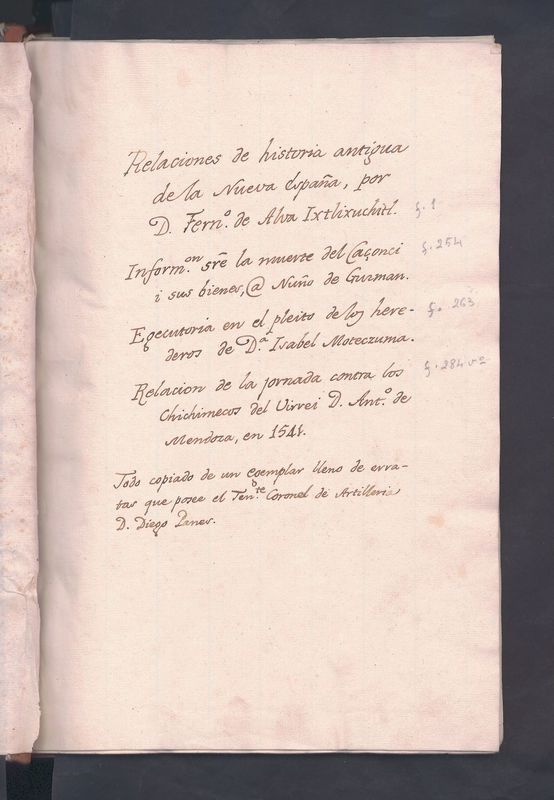 Relaciones de historia antigua
de la Nueva España, por
D. Fern.º de Alva Ixtlixuchitl. f. 1
Inform.ºⁿ sr̃e la muerte del Caçonci f. 254
i sus bienes, @ Nuño de Guzman.
Egecutoria en el pleito de los here- f. 263
deros de D.ª Isabel Moteczuma.
Relacion de la jornada contra los f. 284 vº
Chichimecos del Virrei D. Ant.º de
Mendoza, en 1541.
Todo copiado de un egemplar lleno de erra-
tas que posee el Ten.ᵗᵉ Coronel de Artilleria
D. Diego Panes.